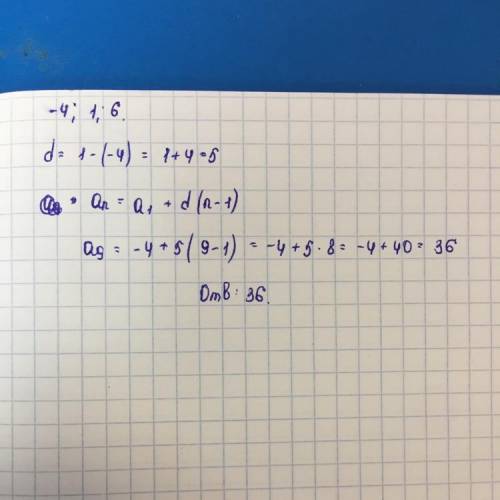 -4; 1; 6.
d = 1 - (-4) = 1 + 4 = 5
aₙ = a₁ + d (n - 1)
a₉ = -4 + 5 ( 9 - 1 ) = -4 + 5 · 8 = -4 + 40 = 36
Отв: 36.